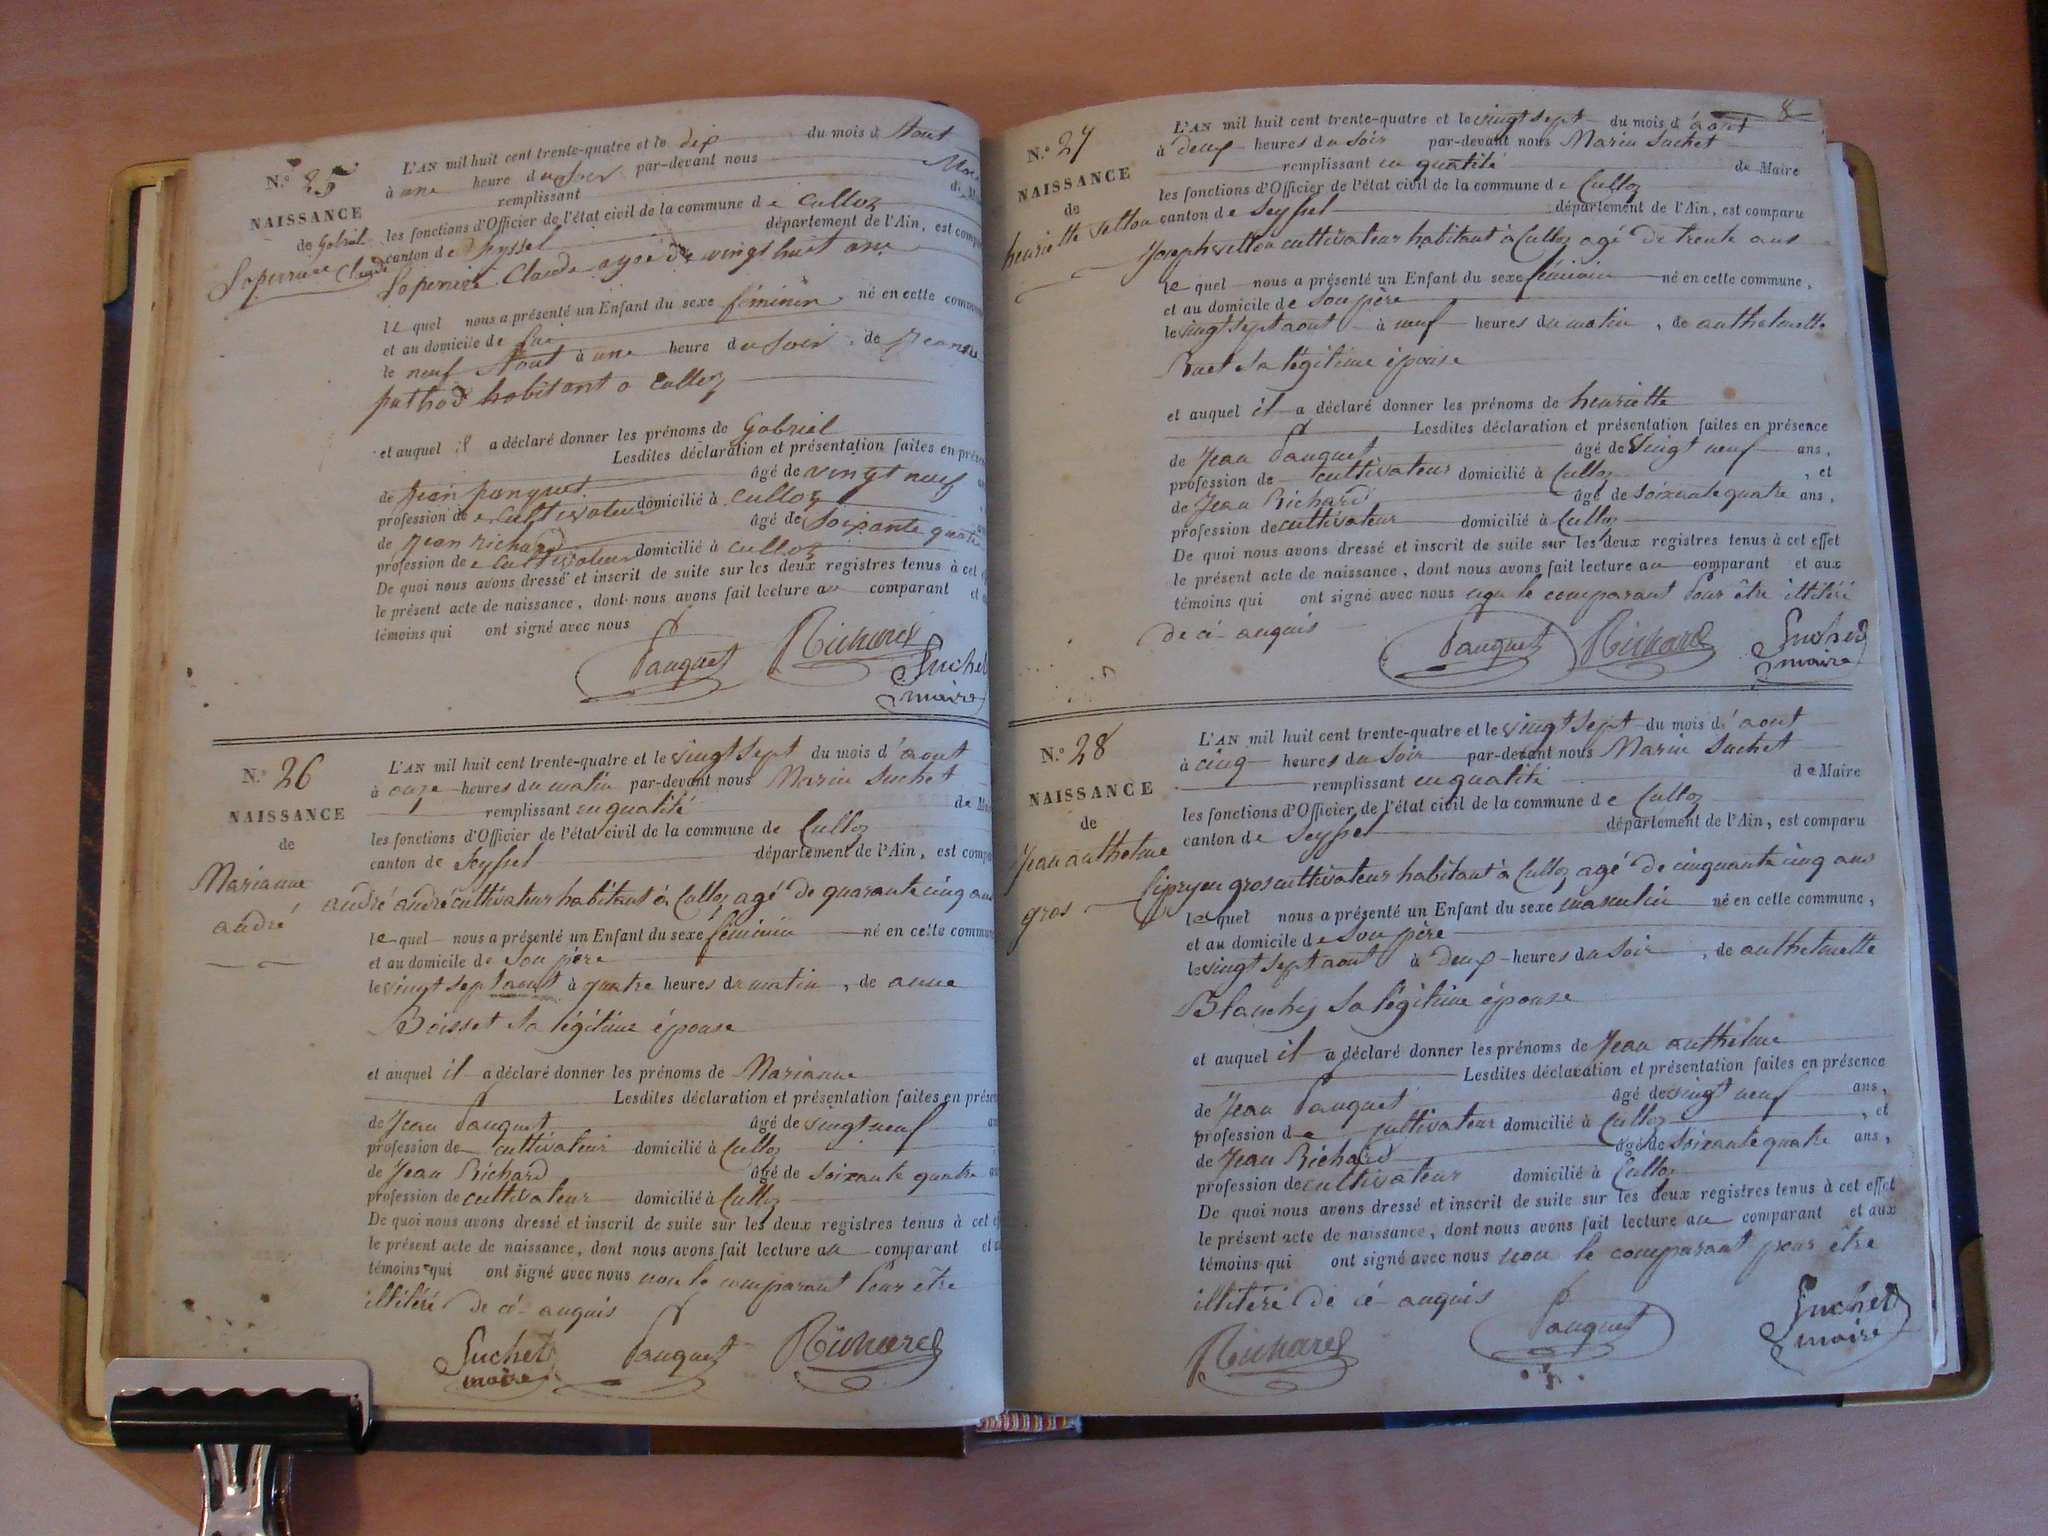 N.° 25
NAISSANCE
de Gobriel
Saperriere Claude
L'AN mil huit cent trente-quatre et le dix du mois d Aout
à une heure du soir par-devant nous
remplissant
les fonctions d'Officier de l'état civil de la commune de Culloz
canton de département de l'Ain, est
Claude de vingt huit ans
le quel nous a présenté un Enfant du sexe féminin, né en cette
et au domicile de lui
le neuf Aout à une heure du soir, de
habitant a Culloz
et auquel il a déclaré donner les prénoms de Gobriel
Lesdites déclaration et présentation faites en
de jean âgé de vingt neuf
profession de cultivateur domicilié à Culloz
de jean richard âgé de soixante quatre
profession de cultivateur domicilié à culloz
De quoi nous avons dressé et inscrit de suite sur les deux registres tenus à cet
le présent acte de naissance, dont nous avons fait lecture au comparant et
témoins qui ont signé avec nous
Pauquet Richard Suchet
maire
N.° 26
NAISSANCE
de
Marianne
andré
L'AN mil huit cent trente-quatre et le vingt sept du mois d'aout
à onze heures du matin par-devant nous Marin Suchet
remplissant en qualité de
les fonctions d'Officier de l'état civil de la commune de Culloz
canton de Seyssel département de l'Ain, est
andré andré cultivateur habitant à Culloz agé de quarante cinq ans
le quel nous a présenté un Enfant du sexe féminin né en cette
et au domicile de son père
le vingt sept aout à quatre heures du matin, de anne
Boisset sa légitime épouse
et auquel il a déclaré donner les prénoms de Marianne
Lesdites déclaration et présentation faites en
de Jean Pauquet âgé de vingt neuf
profession de cultivateur domicilié à Culloz
de Jean Richard âgé de soixante quatre
profession de cultivateur domicilié à Culloz
De quoi nous avons dressé et inscrit de suite sur les deux registres tenus à cet
le présent acte de naissance, dont nous avons fait lecture au comparant et
témoins qui ont signé avec nous non le comparant pour être
illitéré de ce anquis
Suchet Pauquet Richard
maire
8
N.° 27
NAISSANCE
de
henriette vettou
L'AN mil huit cent trente-quatre et le vingt sept du mois d'aout
à deux heures du soir par-devant nous Marin Suchet
remplissant en qualité de Maire
les fonctions d'Officier de l'état civil de la commune de Culloz
canton de Seyssel département de l'Ain, est comparu
Joseph vettou cultivateur habitant à Culloz agé de trente ans
le quel nous a présenté un Enfant du sexe féminin né en cette commune,
et au domicile de son père
le vingt sept aout à neuf heures du matin, de anthelmette
sa légitime épouse
et auquel il a déclaré donner les prénoms de henriette
Lesdites déclaration et présentation faites en présence
de Jean Pauquet âgé de vingt neuf ans,
profession de cultivateur domicilié à Culloz, et
de Jean Richard âgé de soixante quatre ans,
profession de cultivateur domicilié à Culloz
De quoi nous avons dressé et inscrit de suite sur les deux registres tenus à cet effet
le présent acte de naissance, dont nous avons fait lecture au comparant et aux
témoins qui ont signé avec nous non le comparant pour être illitéré
de ce anquis
Pauquet Richard Suchet
maire
N.° 28
NAISSANCE
de
Jean anthelme
gros
L'AN mil huit cent trente-quatre et le vingt sept du mois d'aout
à cinq heures du soir par-devant nous Marin Suchet
remplissant en qualité de Maire
les fonctions d'Officier de l'état civil de la commune de Culloz
canton de Seyssel département de l'Ain, est comparu
Cipryen gros cultivateur habitant à Culloz agé de cinquante cinq ans
le quel nous a présenté un Enfant du sexe masculin né en cette commune,
et au domicile de son père
le vingt sept aout à deux heures du soir, de anthelmette
Blanchy sa légitime épouse
et auquel il a déclaré donner les prénoms de Jean anthelme
Lesdites déclaration et présentation faites en présence
de Jean Pauquet âgé de vingt neuf ans,
profession de cultivateur domicilié à Culloz, et
de Jean Richard âgé de soixante quatre ans,
profession de cultivateur domicilié à Culloz
De quoi nous avons dressé et inscrit de suite sur les deux registres tenus à cet effet
le présent acte de naissance, dont nous avons fait lecture au comparant et aux
témoins qui ont signé avec nous non le comparant pour être
illitéré de ce anquis
Richard Pauquet Suchet
maire